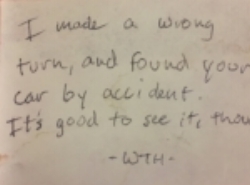 I made a wrong
turn, and found your
car by accident.
It's good to see it, thou
- WTH -